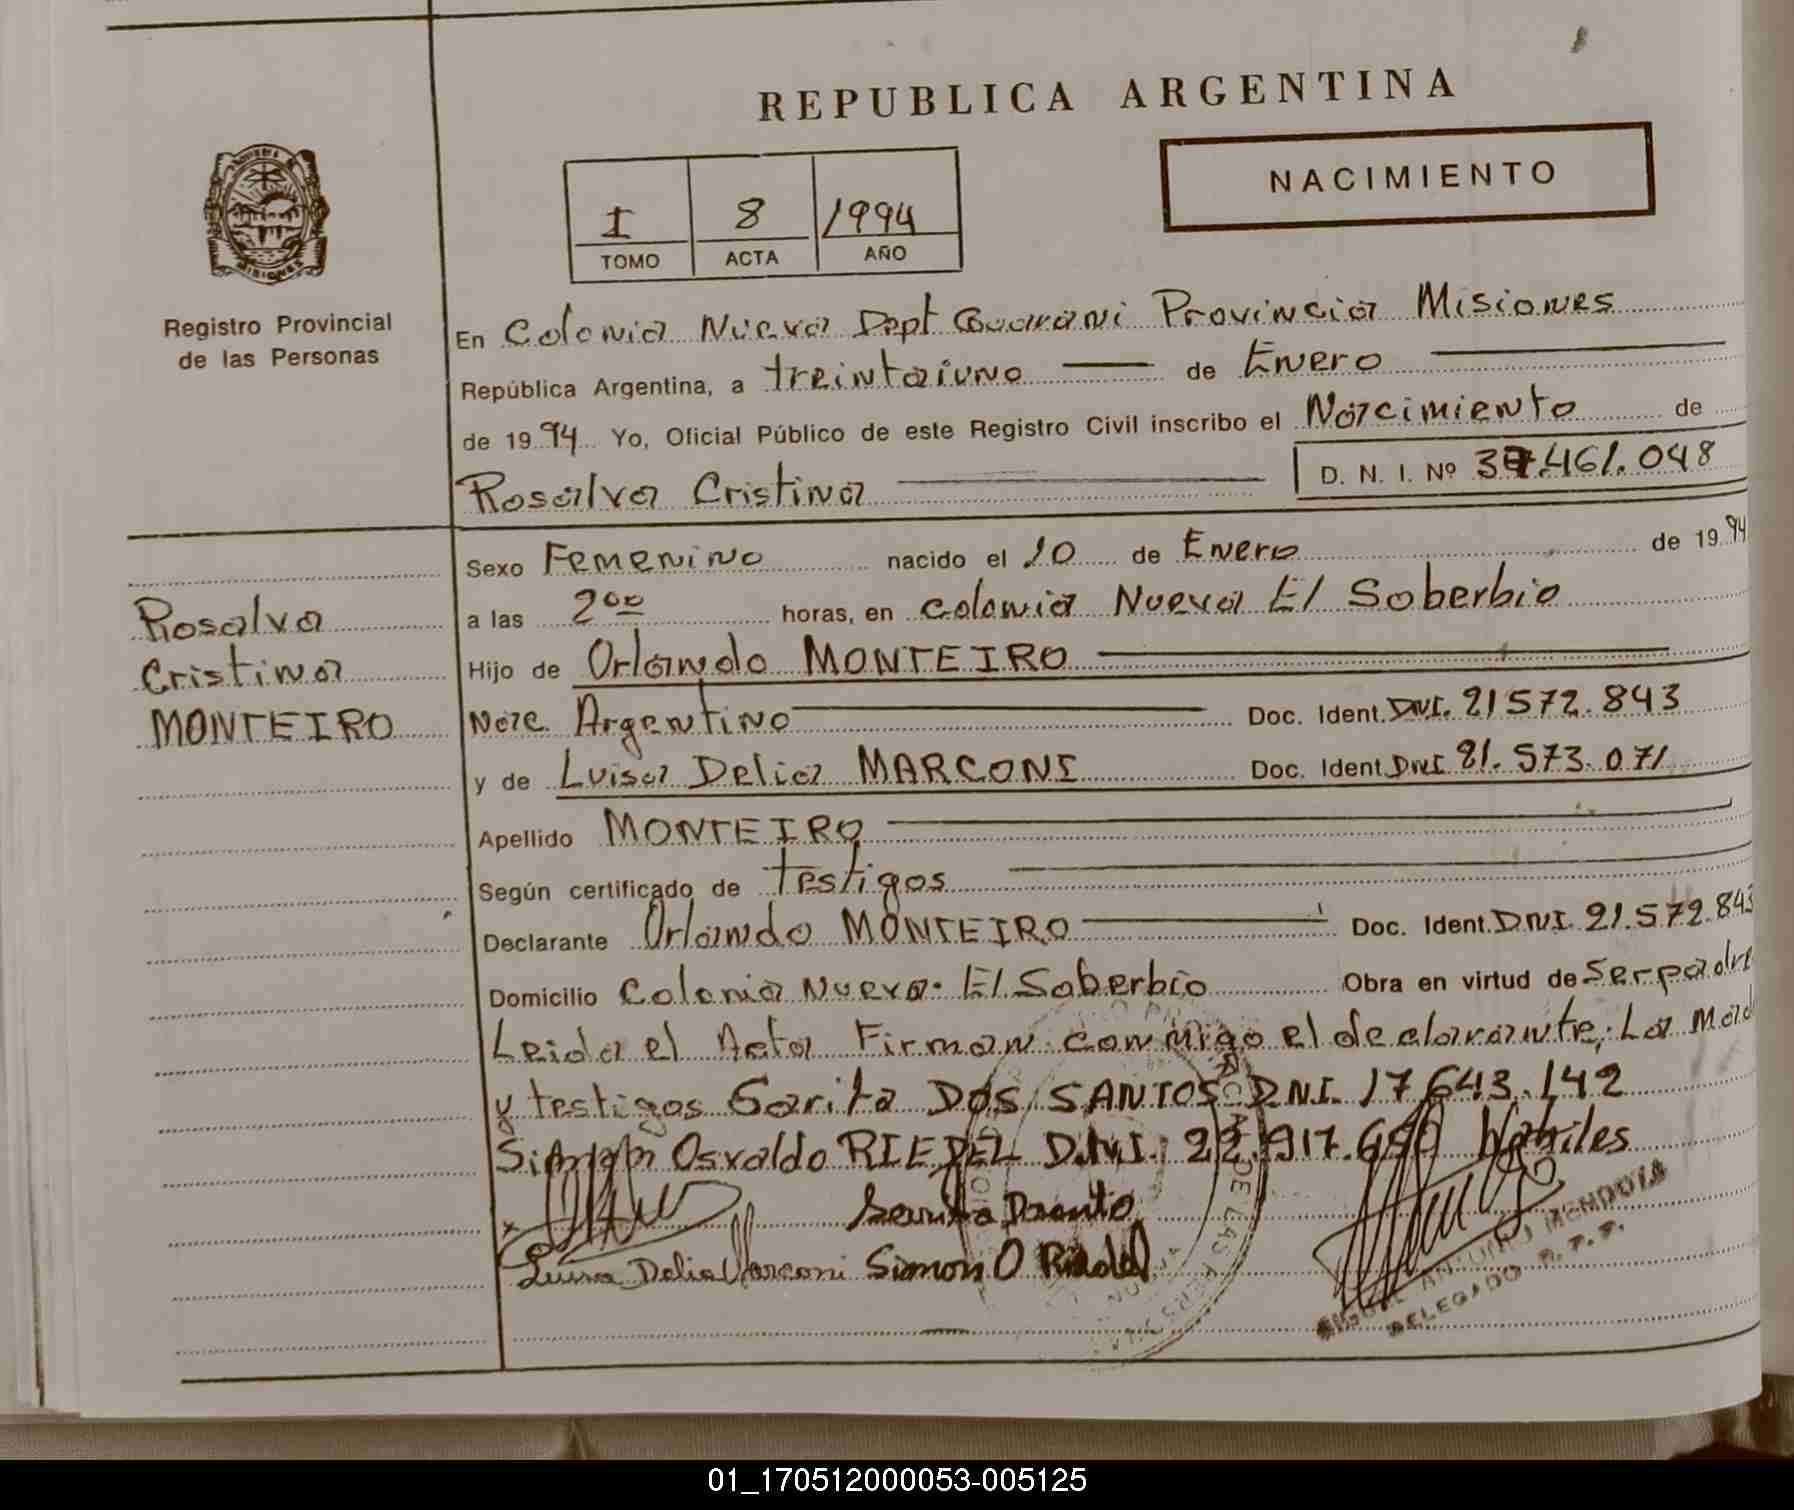 REPUBLICA ARGENTINA
NACIMIENTO
I 8 1994
TOMO ACTA AÑO
MISIONES
Registro Provincial
de las Personas
En Colonia Nueva Dept Guarani Provincia Misiones
República Argentina, a treintaiuno de Enero
de 1994 Yo, Oficial Público de este Registro Civil inscribo el Nacimiento de
Rosalva Cristina D. N. I. Nº 37.461.048
Rosalva
Cristina
MONTEIRO
Sexo Femenino nacido el 10 de Enero de 1994
a las 200 horas, en Colonia Nueva El Soberbio
Hijo de Orlando MONTEIRO
Nac. Argentino Doc. Ident. DNI. 21572.843
y de Luisa Delia MARCONI Doc. Ident DNI 21.573.071
Apellido MONTEIRO
Según certificado de testigos
Declarante Orlando MONTEIRO Doc. Ident. DNI. 21.572.843
Domicilio Colonia Nueva. El Soberbio Obra en virtud de Ser padre
Leida el Acta Firman conmigo el declarante, La Mad
y testigos Sarita DOS SANTOS DNI. 17643.142
Simon Osvaldo RIEDEL D.N.I. 22.917.690 Habiles
Luisa Delia Marconi Simon O Riedel
MIGUEL ANTONIO MENDOZA
DELEGADO R. P. P.
DE LAS PERSONAS
01_170512000053-005125